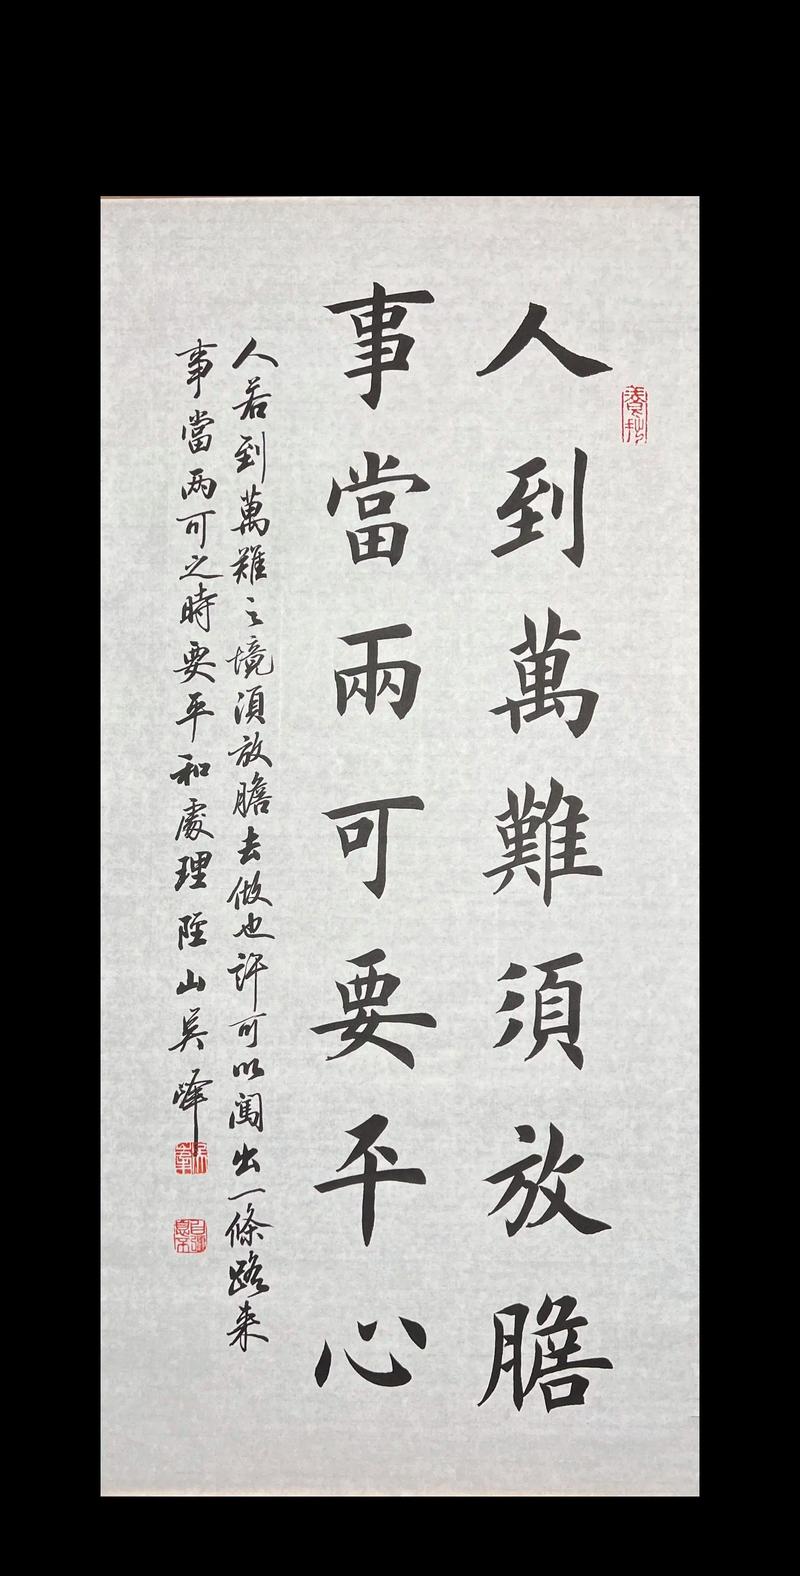 人到萬難須放膽
事當兩可要平心
人若到萬難之境須放膽去做也許可以闖出一條路来
事當两可之時要平和處理 陘山吴峰
自强息不